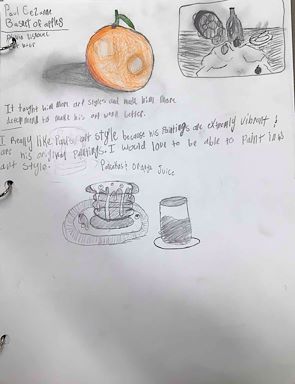 Paul Cezanne
Basket of apples
It taught him more art styles and made him more
determined to make his art work better.
I Really like Paul's art style because his Paintings are extremely vibrant &
are his original Paintings. I would love to be able to Paint in his
art style.
Pancakes & Orange Juice